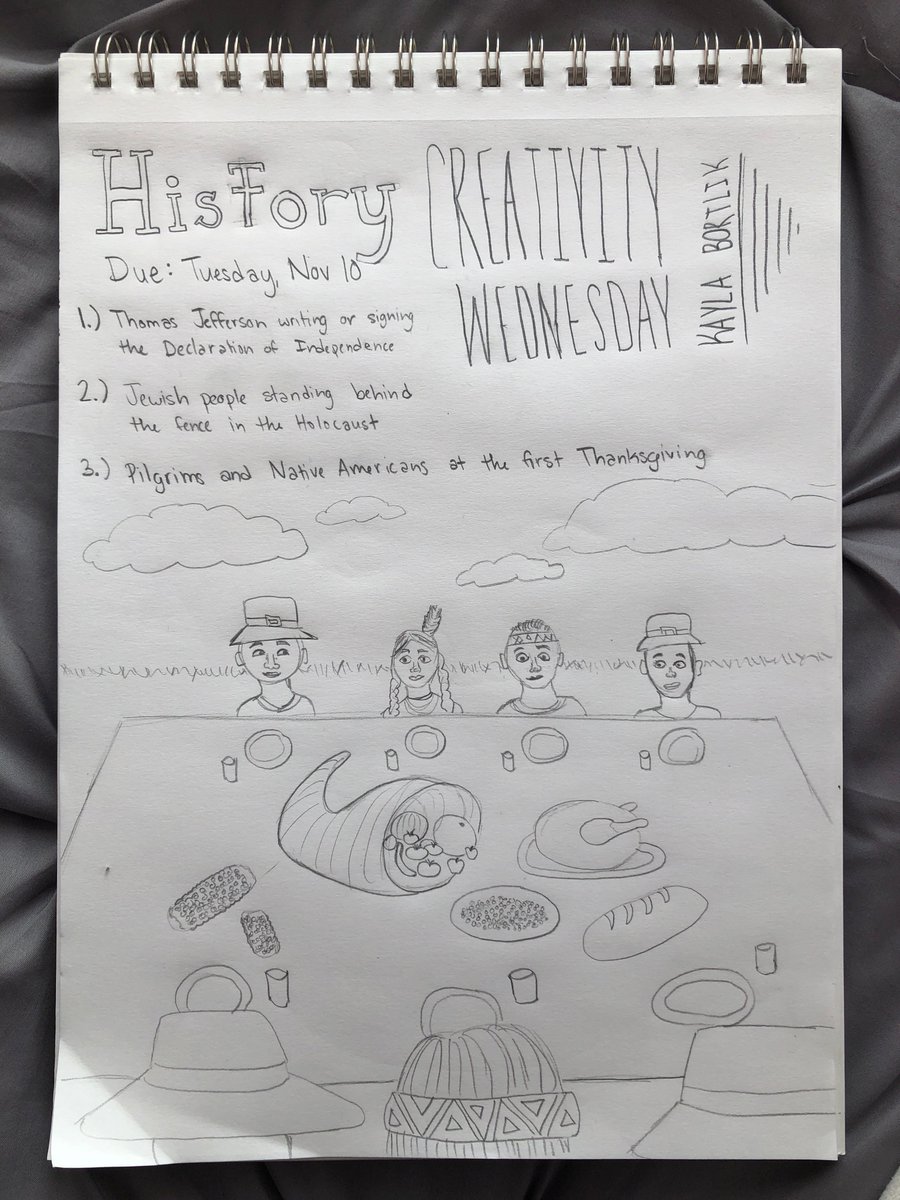 History
Due: Tuesday, Nov 10
CREATIVITY
WEDNESDAY
KAYLA BORTLIK
1.) Thomas Jefferson writing or signing
the Declaration of Independence
2.) Jewish people standing behind
the fence in the Holocaust
3.) Pilgrims and Native Americans at the first Thanksgiving